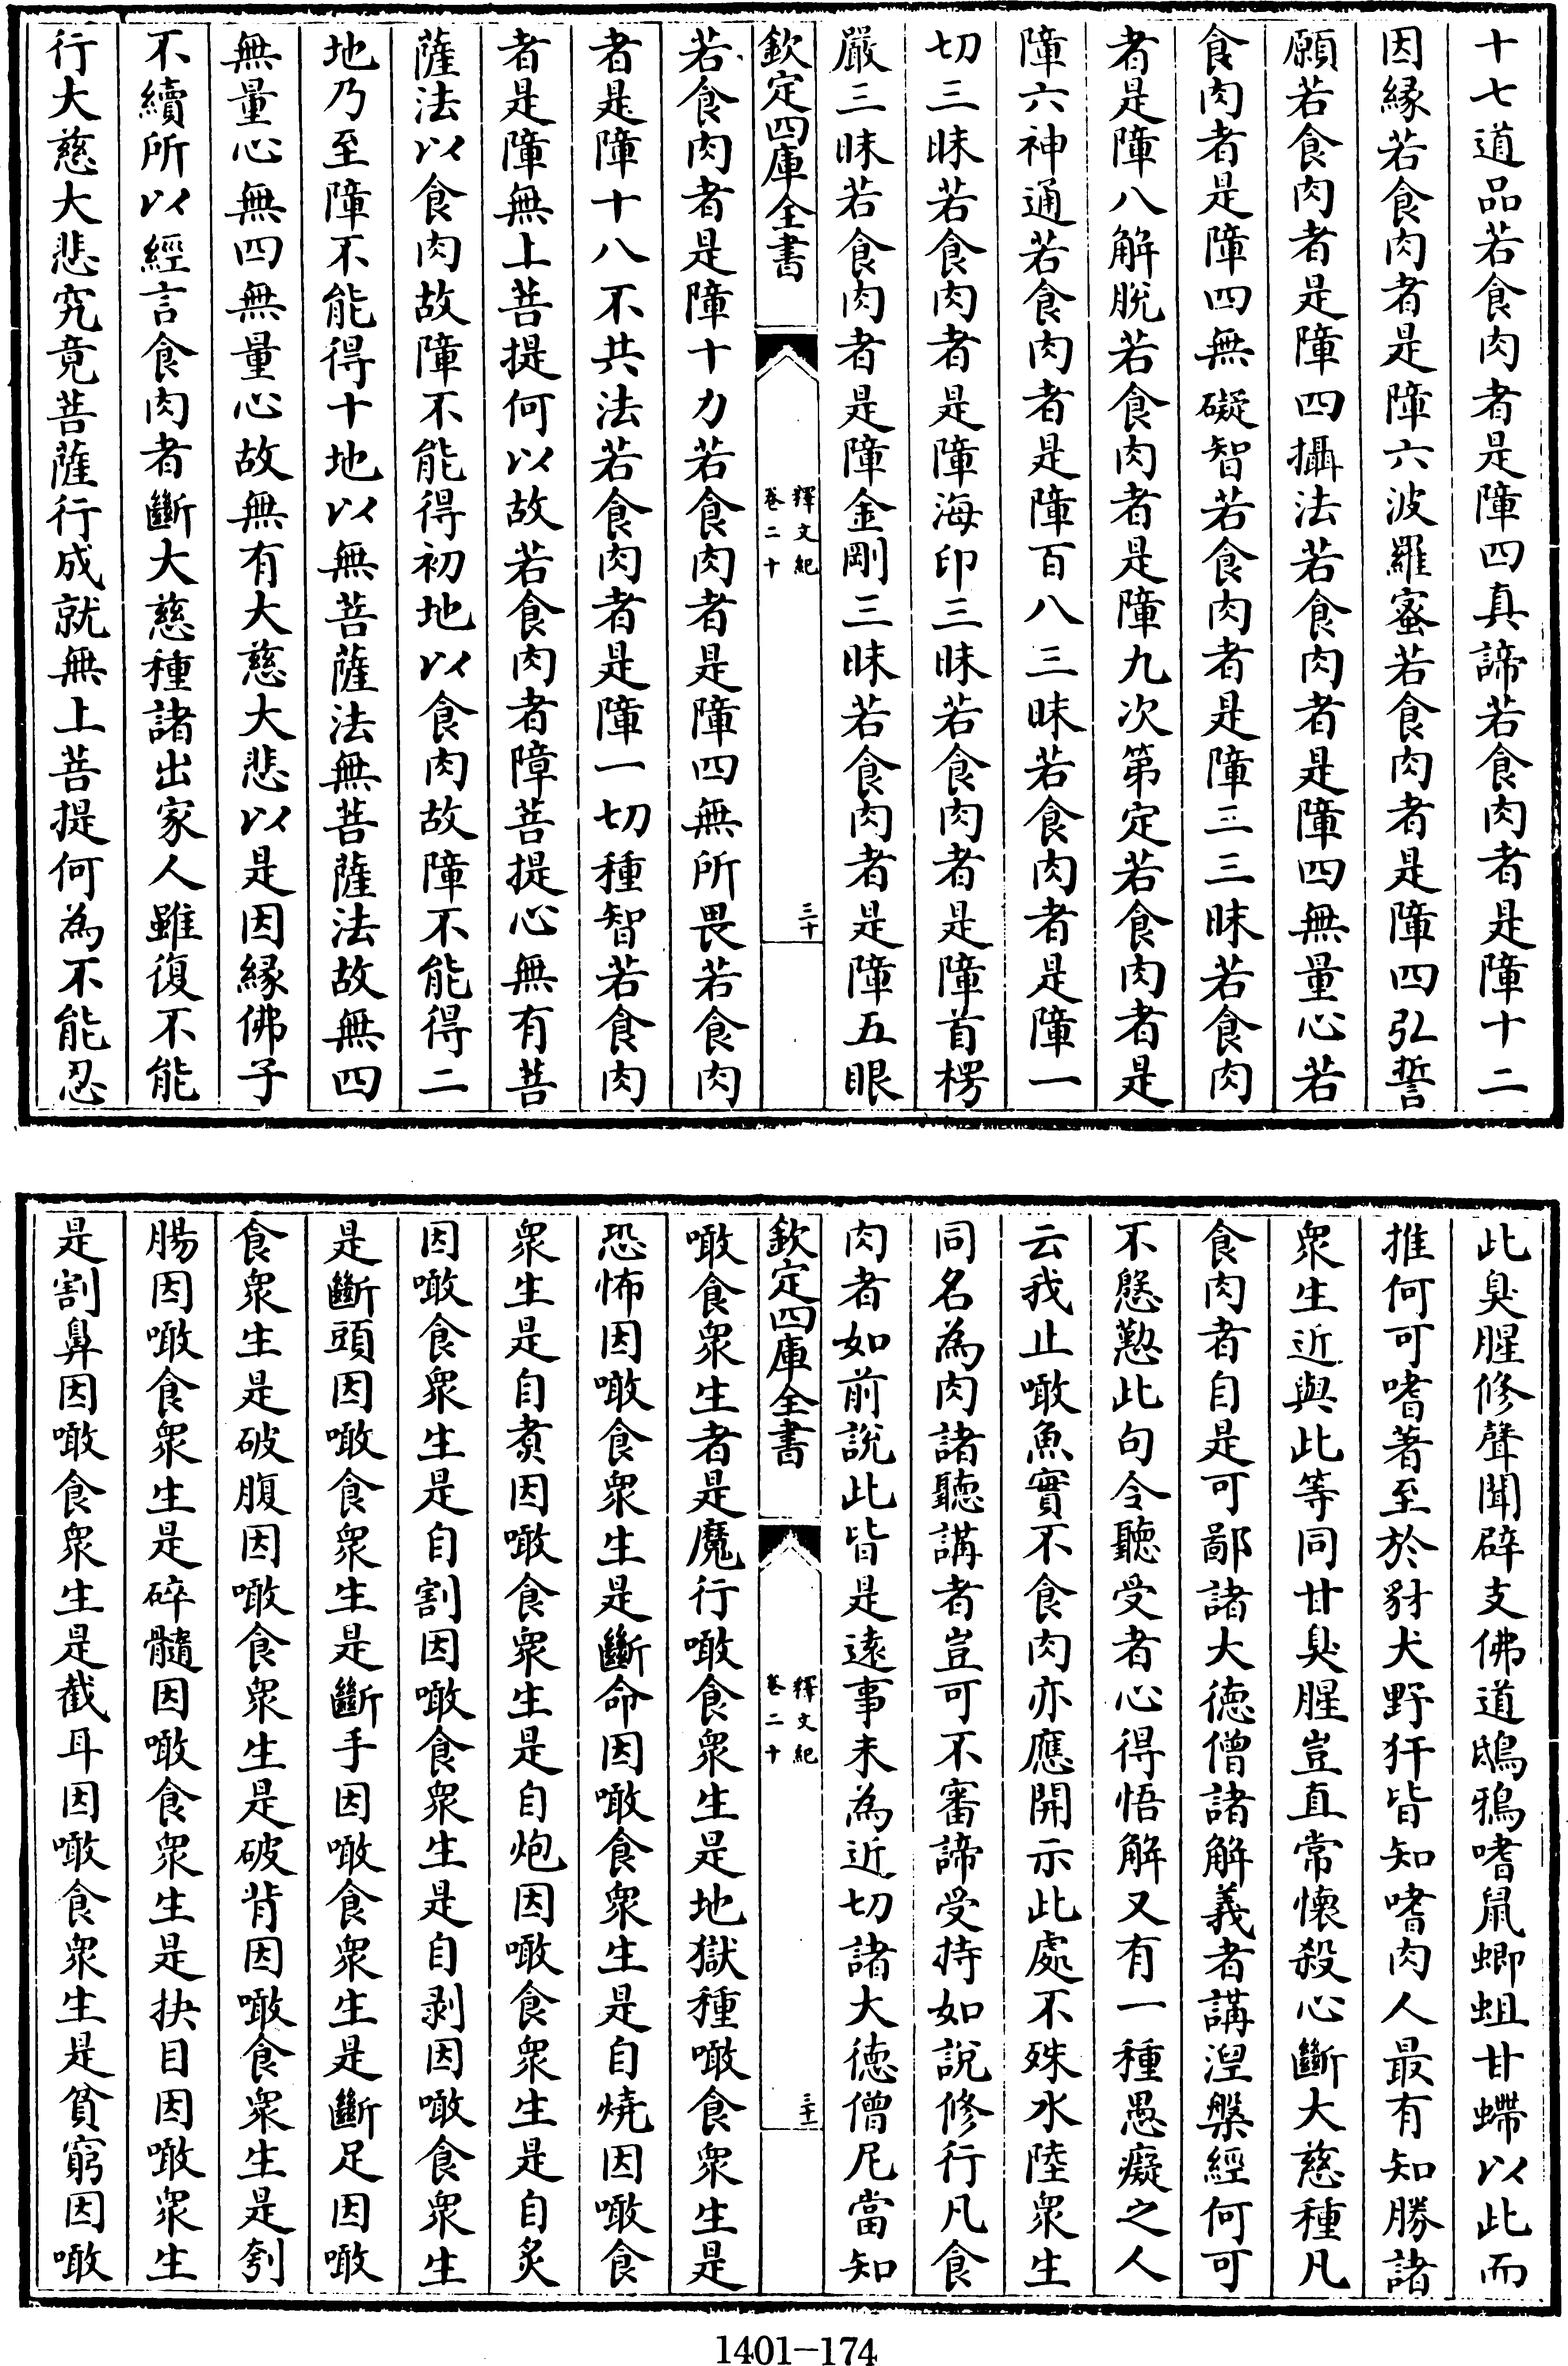 十七道品若食肉者是障四真諦若食肉者是障十二
因緣若食肉者是障六波羅蜜若食肉者是障四弘誓
願若食肉者是障四攝法若食肉者是障四無量心若
食肉者是障四無礙智若食肉者是障三三昧若食肉
者是障八解脫若食肉者是障九次第定若食肉者是
障六神通若食肉者是障百八三昧若食肉者是障一
切三昧若食肉者是障海印三昧若食肉者是障首楞
嚴三昧若食肉者是障金剛三昧若食肉者是障五眼
欽定四庫全書
釋文紀
卷二十
三十
若食肉者是障十力若食肉者是障四無所畏若食肉
者是障十八不共法若食肉者是障一切種智若食肉
者是障無上菩提何以故若食肉者障菩提心無有菩
薩法以食肉故障不能得初地以食肉故障不能得二
地乃至障不能得十地以無菩薩法無菩薩法故無四
無量心無四無量心故無有大慈大悲以是因緣佛子
不續所以經言食肉者斷大慈種諸出家人雖復不能
行大慈大悲究竟菩薩行成就無上菩提何為不能忍
此臭腥修聲聞辟支佛道鴟鴉嗜鼠蝍蛆甘螮以此而
推何可嗜著至於豺犬野犴皆知嗜肉人最有知勝諸
衆生近與此等同甘臭腥豈直常懷殺心斷大慈種凡
食肉者自是可鄙諸大德僧諸解義者講湼槃經何可
不慇懃此句令聽受者心得悟解又有一種愚癡之人
云我止噉魚實不食肉亦應開示此處不殊水陸衆生
同名為肉諸聽講者豈可不審諦受持如說修行凡食
肉者如前說此皆是遠事未為近切諸大德僧尼當知
欽定四庫全書
釋文紀
卷二十
三十一
噉食衆生者是魔行噉食衆生是地獄種噉食衆生是
恐怖因噉食衆生是斷命因噉食衆生是自燒因噉食
衆生是自煑因噉食衆生是自炮因噉食衆生是自炙
因噉食衆生是自割因噉食衆生是自剥因噉食衆生
是斷頭因噉食衆生是斷手因噉食衆生是斷足因噉
食衆生是破腹因噉食衆生是破背因噉食衆生是刳
腸因噉食衆生是碎髓因噉食衆生是抉目因噉衆生
是割鼻因噉食衆生是截耳因噉食衆生是貧窮因噉
1401-174